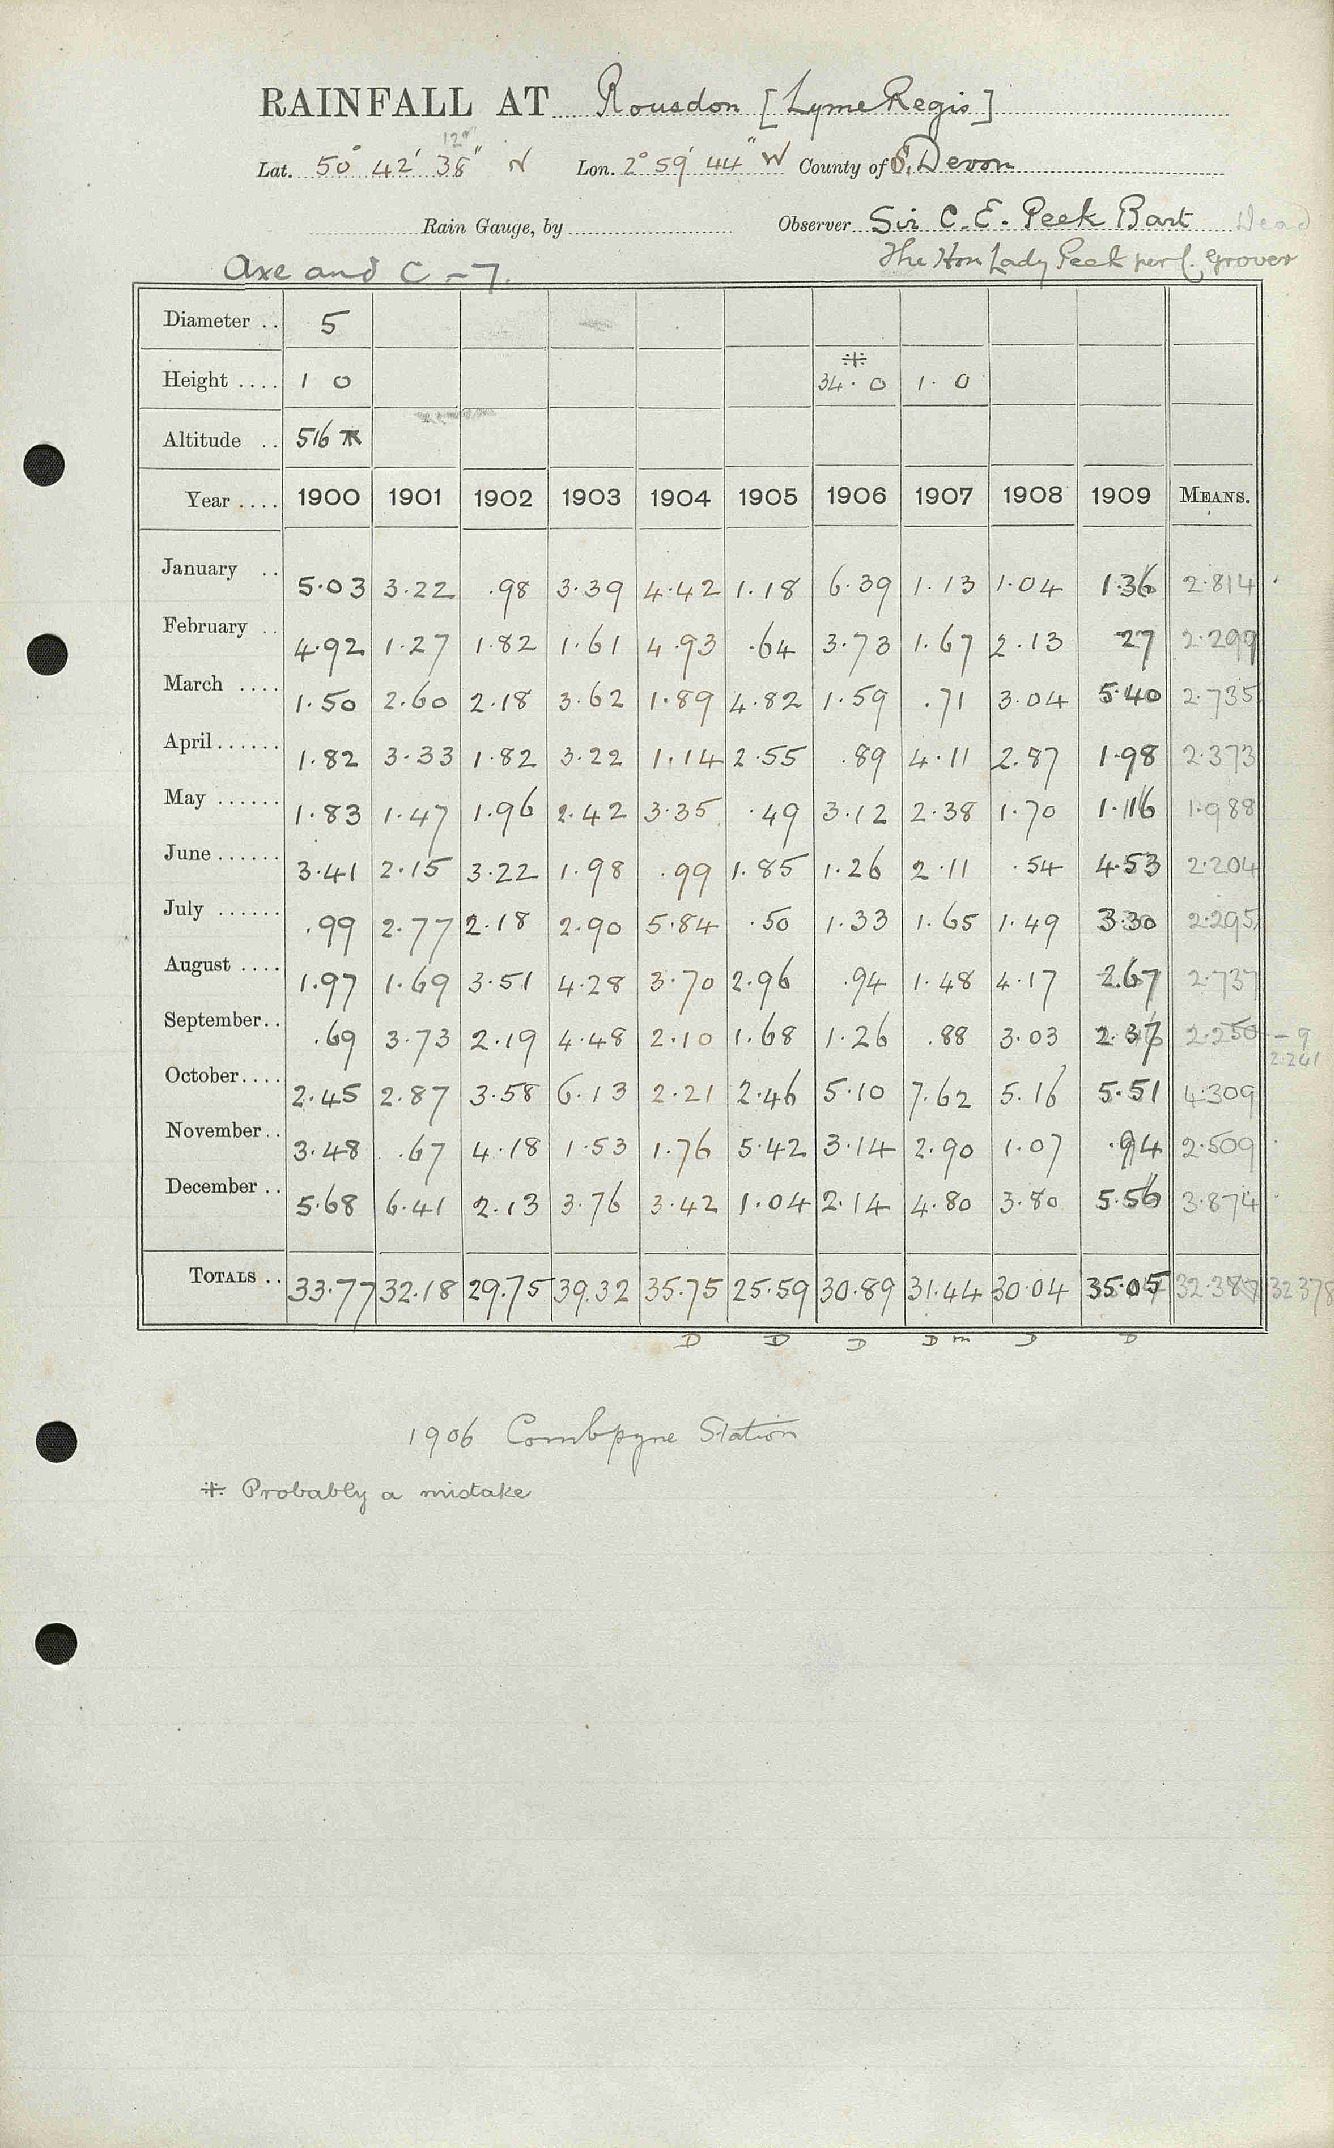 RAINFALL AT Rousdon [Lyme Regis]
Lat. 50° 42' 38" N Lon. 2° 59' 44" W County of S. Devon
Rain Gauge, by Observer Sir C. E. Peek Bart Dead
Axe and C - 7. The Hon Lady Peek per C. Grover
Diameter .. 5
Height .... 1 0 ⁜ 34.0 1.0
Altitude .. 516
Year .... 1900 1901 1902 1903 1904 1905 1906 1907 1908 1909 MEANS.
January .. 5.03 3.22 .98 3.39 4.42 1.18 6.39 1.13 1.04 1.36 2.814
February .. 4.92 1.27 1.82 1.61 4.93 .64 3.73 1.67 2.13 27 2.299
March .... 1.50 2.60 2.18 3.62 1.89 4.82 1.59 .71 3.04 5.40 2.735
April...... 1.82 3.33 1.82 3.22 1.14 2.55 .89 4.11 2.87 1.98 2.373
May ...... 1.83 1.47 1.96 2.42 3.35 .49 3.12 2.38 1.70 1.16 1.988
June...... 3.41 2.15 3.22 1.98 .99 1.85 1.26 2.11 .54 4.53 2.204
July ...... .99 2.77 2.18 2.90 5.84 .50 1.33 1.65 1.49 3.30 2.295
August .... 1.97 1.69 3.51 4.28 3.70 2.96 .94 1.48 4.17 2.67 2.737
September.. .69 3.73 2.19 4.48 2.10 1.68 1.26 .88 3.03 2.37 2.250 - 9
2.241
October.... 2.45 2.87 3.58 6.13 2.21 2.46 5.10 7.62 5.16 5.51 4.309
November.. 3.48 .67 4.18 1.53 1.76 5.42 3.14 2.90 1.07 .94 2.509
December .. 5.68 6.41 2.13 3.76 3.42 1.04 2.14 4.80 3.80 5.56 3.874
TOTALS .. 33.77 32.18 29.75 39.32 35.75 25.59 30.89 31.44 30.04 35.05 32.387 32.378
D D D D m D D
1906 Combpyne Station
⁜ Probably a mistake